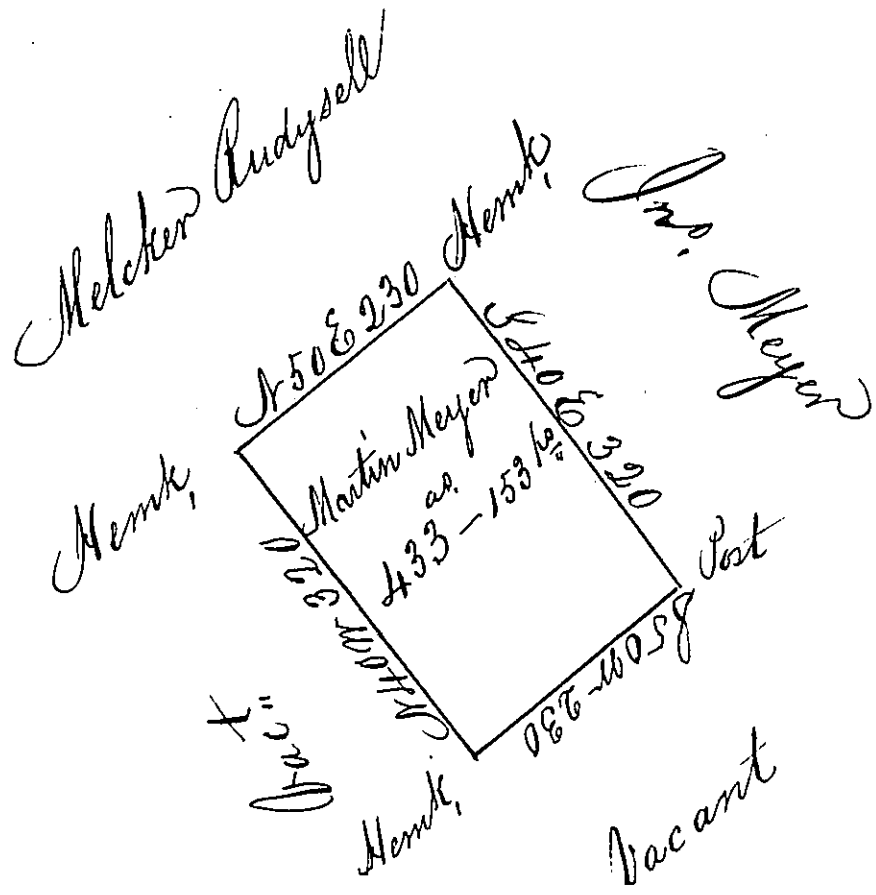 Melcher Rudysell
Hemk,
Jno. Meyer
N 50 E 230
S 40 E 320
Martin Meyer
as.
433 – 153 ps
Hemk,
N 40 W 320
Post
S 50 W 230
Vac"t
Hemk,
Vacant